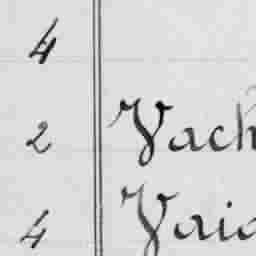 4
2 Vach
4 Vaid